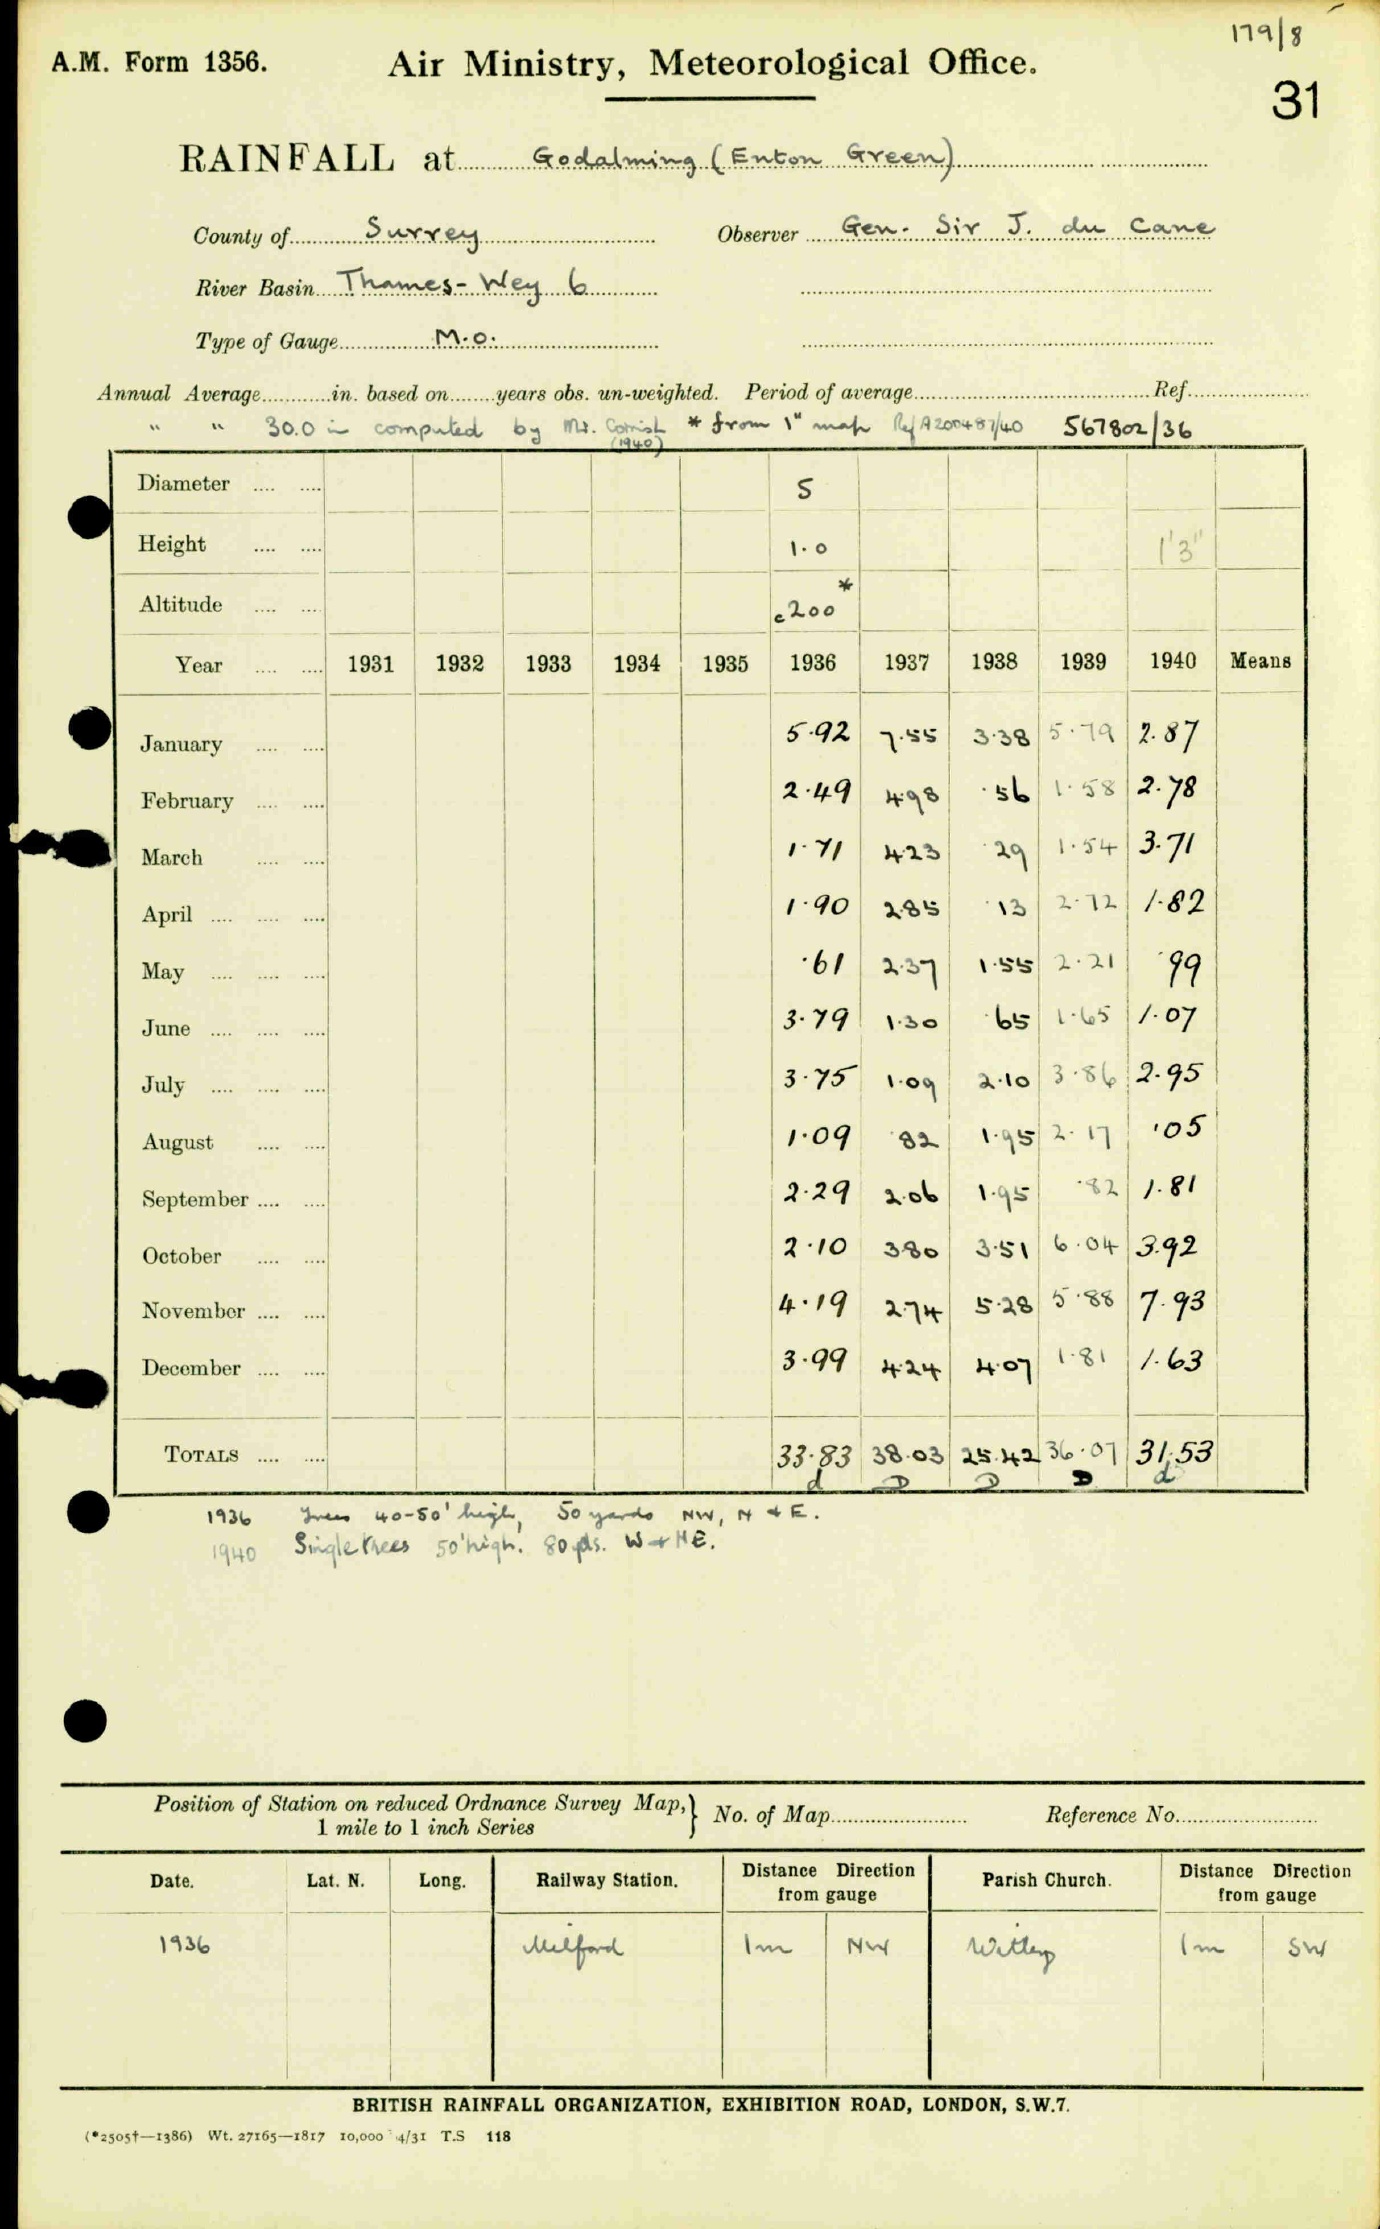 179/8
A.M. Form 1356. Air Ministry, Meteorological Office.
31
RAINFALL at Godalming (Enton Green)
County of Surrey Observer Gen. Sir J. du Cane
River Basin Thames-Wey 6
Type of Gauge M.O.
Annual Average in. based on years obs. un-weighted. Period of average Ref.
" " 30.0 in computed by Mr. Cornish (1940) * from 1" map Ref A200487/40 567802/36
Diameter 5
Height 1.0 1'3"
Altitude c200*
Year 1931 1932 1933 1934 1935 1936 1937 1938 1939 1940 Means
January 5.92 7.55 3.38 5.79 2.87
February 2.49 4.98 .56 1.58 2.78
March 1.71 4.23 .29 1.54 3.71
April 1.90 2.85 .13 2.72 1.82
May .61 2.37 1.55 2.21 .99
June 3.79 1.30 .65 1.65 1.07
July 3.75 1.09 2.10 3.86 2.95
August 1.09 .82 1.95 2.17 .05
September 2.29 2.06 1.95 .82 1.81
October 2.10 3.80 3.51 6.04 3.92
November 4.19 2.74 5.28 5.88 7.93
December 3.99 4.24 4.07 1.81 1.63
TOTALS 33.83 38.03 25.42 36.07 31.53
d D D D d
1936 Trees 40-50' high, 50 yards NW, N & E.
1940 Single trees 50' high. 80 yds. W & NE.
Position of Station on reduced Ordnance Survey Map, 1 mile to 1 inch Series } No. of Map Reference No.
Date. Lat. N. Long. Railway Station. Distance Direction from gauge Parish Church. Distance Direction from gauge
1936 Milford 1m NW Witley 1m SW
BRITISH RAINFALL ORGANIZATION, EXHIBITION ROAD, LONDON, S.W.7.
(*2505†—1386) Wt. 27165—1817 10,000 4/31 T.S 118